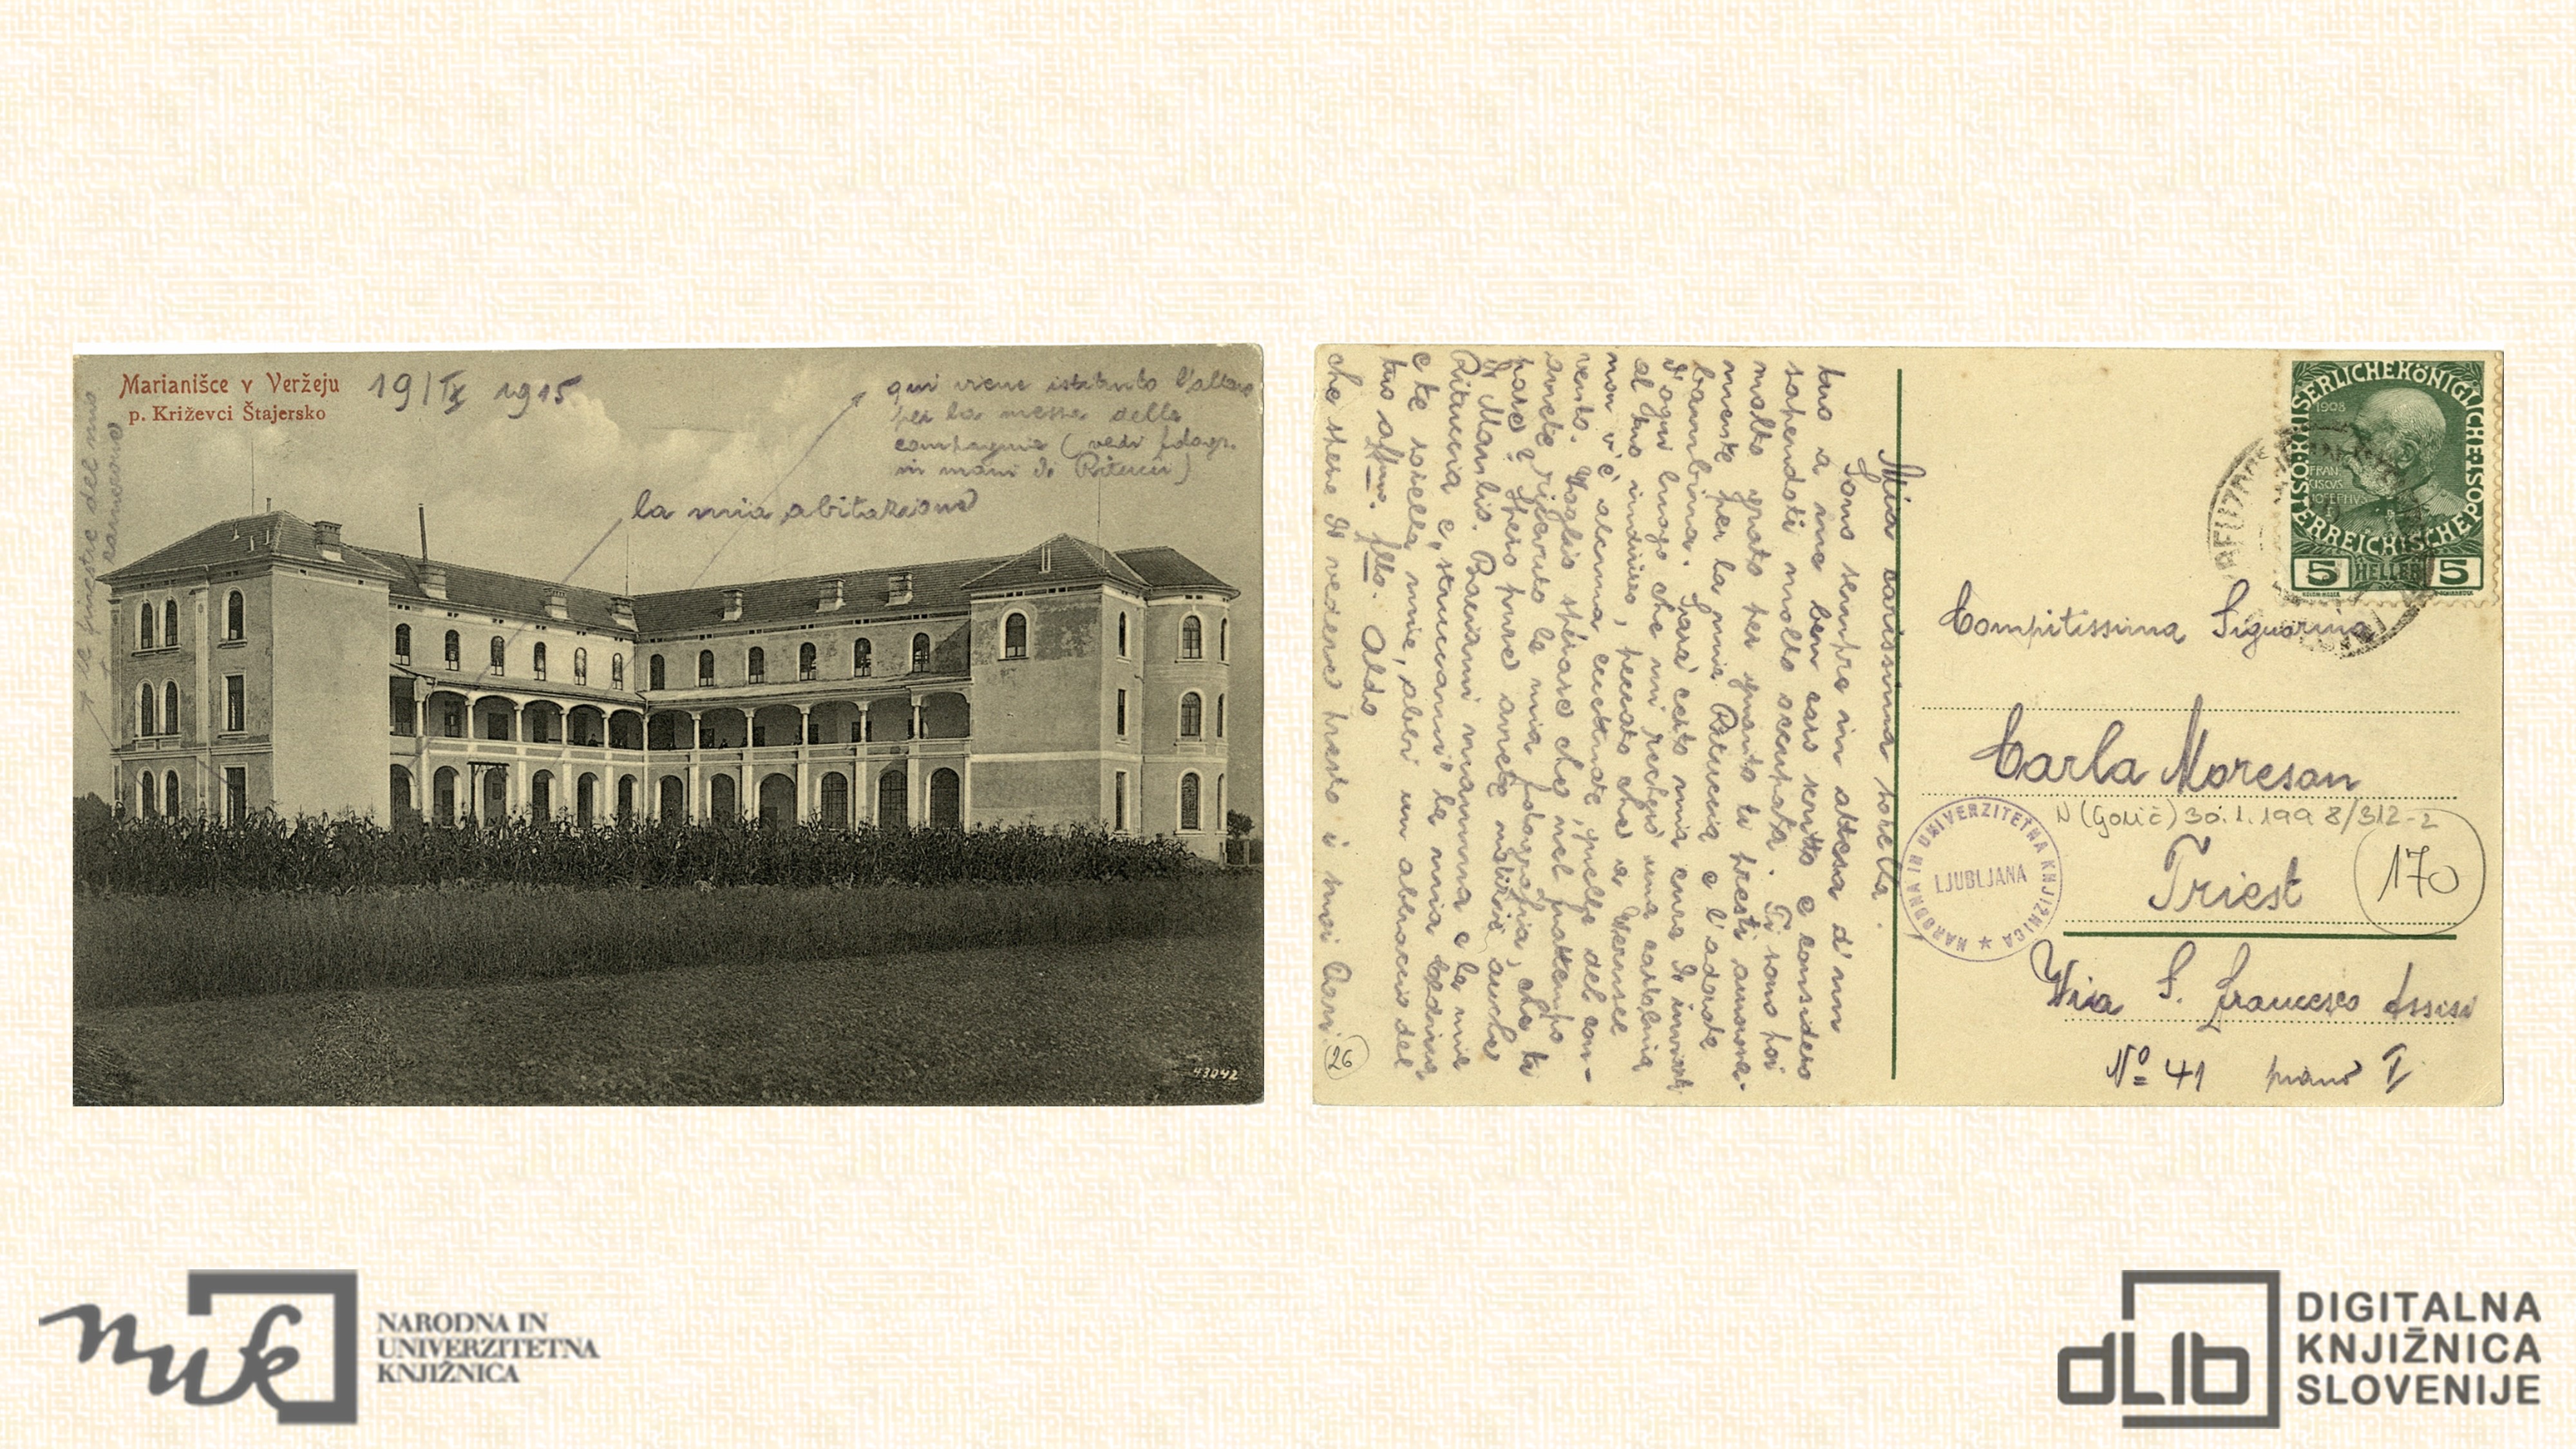 Marianišce v Veržeju
p. Križevci Štajersko
19/IX 1915
qui viene istituito l'altare
per la messa della
compagnia (vedi fotogr.
in mani di Ritucci)
la mia abitazione
le finestre del mio
43042
Mia carissima sorella.
Sono sempre in attesa d'un
tuo a me ben caro scritto e considero
sapendoti molto occupata. Ti sono poi
molto grato per quanto ti presti amorosa-
mente per la mia Rituccia e l'adorata
bambina. Sarà certo mia cura di inviarti
d'ogni luogo che mi recherò una cartolina
al tuo indirizzo, peccato che a Wernsee
non v'è alcuna eccettuate quelle del con-
vento. Voglio sperare che nel frattempo
avrete ricevuto la mia fotografia, che ti
pare? Spero pure avrete notizie anche
di Manlio. Baciami mamma e la mia
Rituccia e, la mia bambina
e te sorella mia, abbi un abbraccio del
tuo affmo. fllo. Aldo
che spera di vedere presto i suoi cari.
26
KAISERLICHE KÖNIGLICHE
ÖSTERREICHISCHE POST
1908
FRAN
CISCVS
IOSEPHVS
5 HELLER 5
Compitissima Signorina
Carla Moresan
N (Golič) 30.1.1998/312-2
Triest
170
Via S. Francesco Assisi
Nº 41 piano I
NARODNA IN UNIVERZITETNA KNJIŽNICA
LJUBLJANA
nuk
NARODNA IN
UNIVERZITETNA
KNJIŽNICA
dLib
DIGITALNA
KNJIŽNICA
SLOVENIJE